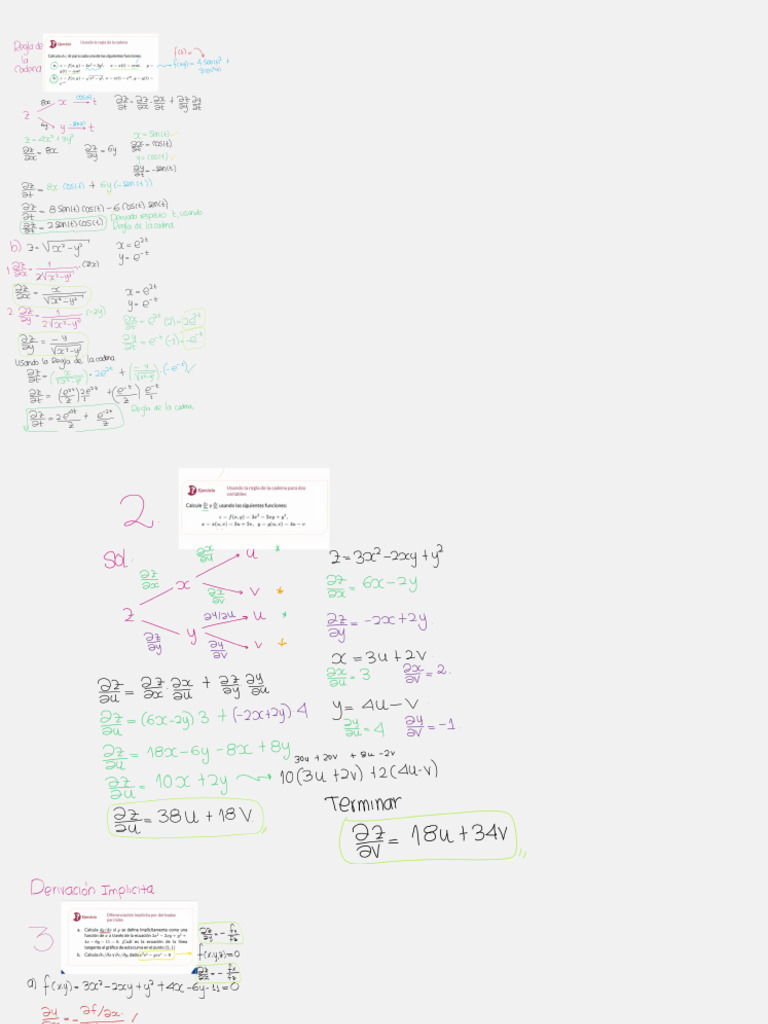 Regla de la cadena
Ejercicio
Usando la regla de la cadena
Calcule dz/dt para cada una de las siguientes funciones:
z = 4x² + 3y²
∂z/∂x = 8x
∂z/∂y = 6y
x = sen(t)
∂x/∂t = cos(t)
y = cos(t)
∂y/∂t = -sen(t)
∂z/∂t = ∂z/∂x · ∂x/∂t + ∂z/∂y ∂y/∂t
∂z/∂t = 8x cos(t) + 6y(-sen(t))
∂z/∂t = 8 sen(t) cos(t) - 6 cos(t) sen(t)
∂z/∂t = 2 sen(t) cos(t)
Derivada respecto t, usando
Regla de la cadena
b) z = √x² - y²
x = e²ᵗ
y = e⁻ᵗ
1. ∂z/∂x = 1/2√x² - y² · (2x)
∂z/∂x = x/√x² - y²
x = e²ᵗ
y = e⁻ᵗ
2. ∂z/∂y = 1/2√x² - y² (-2y)
∂x/∂t = e²ᵗ (2) = 2e²ᵗ
∂z/∂y = -y/√x² - y²
∂y/∂t = e⁻ᵗ (-1) = -e⁻ᵗ
Usando la Regla de la cadena
∂z/∂t = (x/√x² - y²) · 2e²ᵗ + (-y/√x² - y²) · (-e⁻ᵗ) ✓
Regla de la cadena
2.
Ejercicio
Usando la regla de la cadena para dos variables
Calcule ∂z/∂u y ∂z/∂v usando las siguientes funciones:
z = f(x, y) = 3x² - 2xy + y²,
x = x(u, v) = 3u + 2v, y = y(u, v) = 4u - v.
Sol.
∂z/∂x
x
∂x/∂u
u
v
z
∂z/∂y
y
∂y/∂u
u
∂y/∂v
v
z = 3x² - 2xy + y²
∂z/∂x = 6x - 2y
∂z/∂y = -2x + 2y
x = 3u + 2v
∂x/∂u = 3
∂x/∂v = 2.
y = 4u - v
∂y/∂u = 4
∂y/∂v = -1
∂z/∂u = ∂z/∂x · ∂x/∂u + ∂z/∂y ∂y/∂u
∂z/∂u = (6x - 2y) 3 + (-2x + 2y) 4
∂z/∂u = 18x - 6y - 8x + 8y
30u + 20v + 8u - 2v
∂z/∂u = 10x + 2y → 10(3u + 2v) + 2(4u - v)
∂z/∂u = 38u + 18v
Terminar
∂z/∂v = 18u + 34v
Derivación Implicita
3
Ejercicio
Diferenciación implícita por derivadas parciales
a. Calcule dy/dx si y se define implícitamente como una
función de x a través de la ecuación 3x² - 2xy + y² +
4x - 6y - 11 = 0. ¿Cuál es la ecuación de la línea
tangente al gráfico de esta curva en el punto (2, 1)
f(x,y,z) = 0
a) f(x,y) = 3x² - 2xy + y² + 4x - 6y - 11 = 0